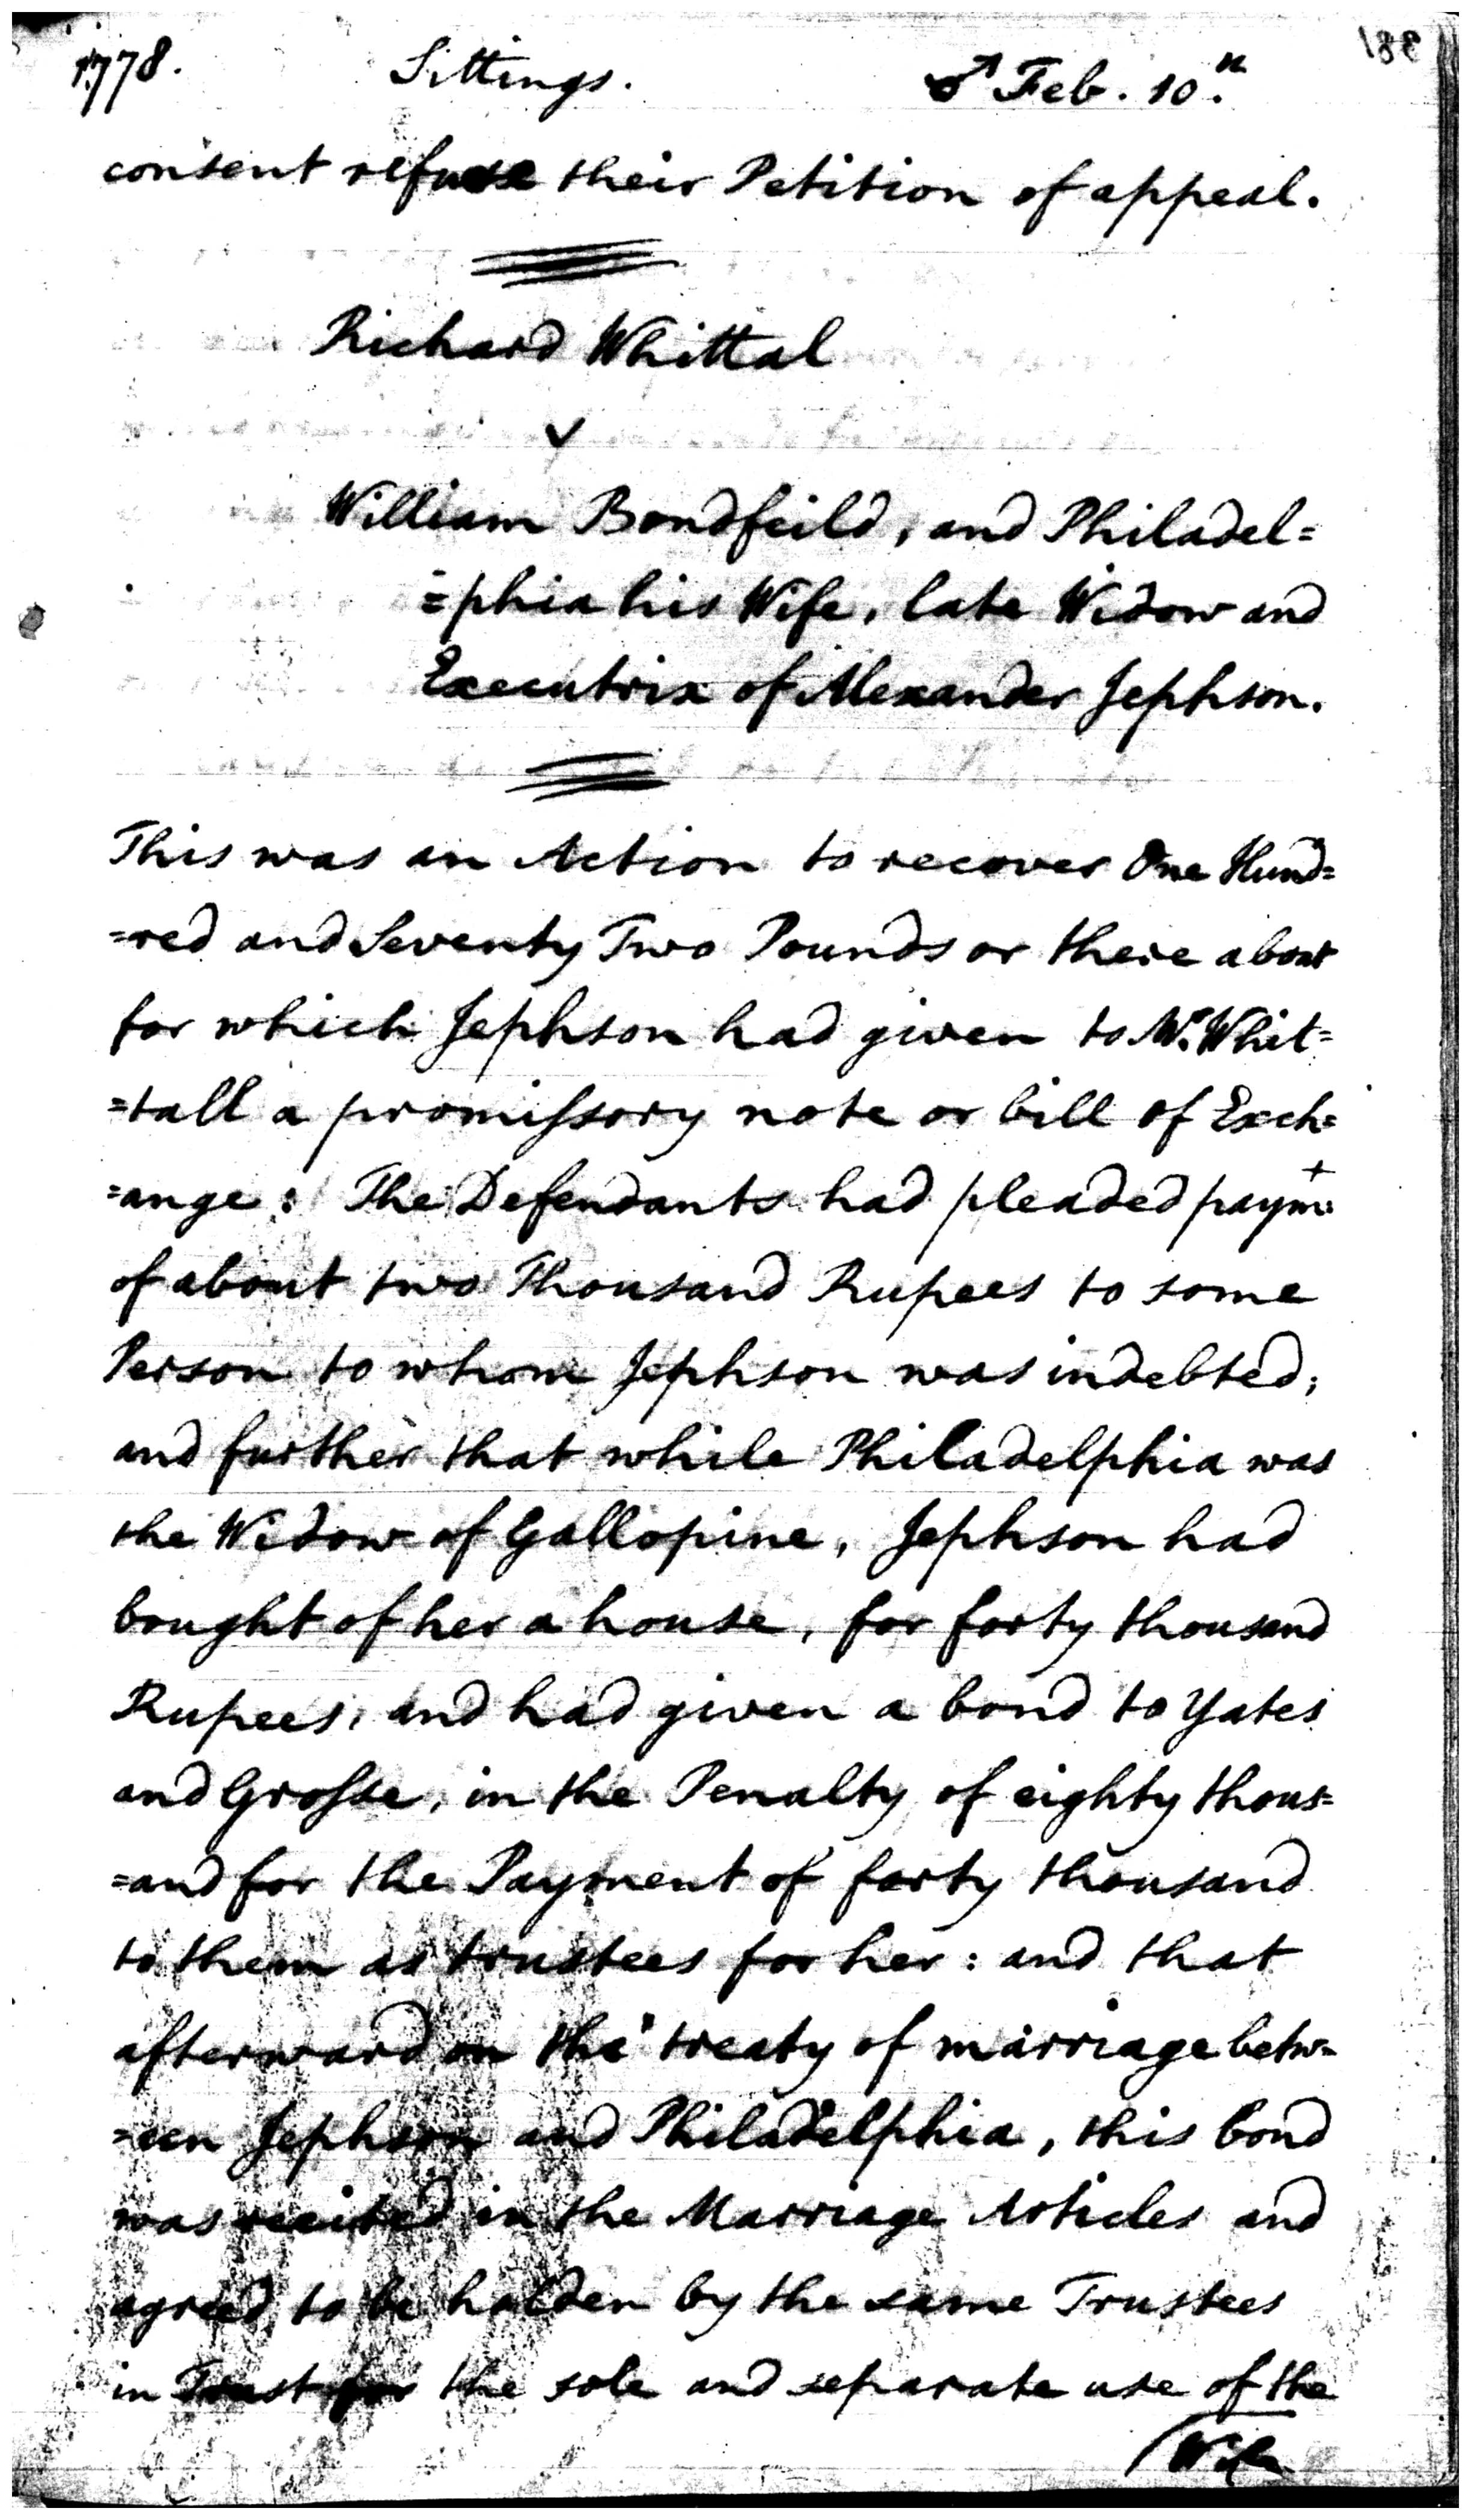 1778. Sittings. ♂ Feb. 10th.
consent refuse their Petition of appeal.
Richard Whittal
v
William Bondfeild, and Philadel=
=phia his Wife, late Widow and
Executrix of Alexander Jephson.
This was an Action to recover One Hund=
=red and Seventy Two Pounds or there about
for which Jephson had given to Mr. Whit=
=tall a promiſsory note or bill of Exch=
=ange: The Defendants had pleaded paymt.
of about two Thousand Rupees to some
Person to whom Jephson was indebted;
and further that while Philadelphia was
the Widow of Gallopine, Jephson had
bought of her a house, for forty thousand
Rupees, and had given a bond to Yates
and Groſse, in the Penalty of eighty thous=
=and for the Payment of forty thousand
to them as trustees for her: and that
afterward on the treaty of marriage betw=
=een Jephson and Philadelphia, this bond
was recited in the Marriage Articles and
agreed to be holden by the same Trustees
in Trust for the sole and separate use of the
Wife